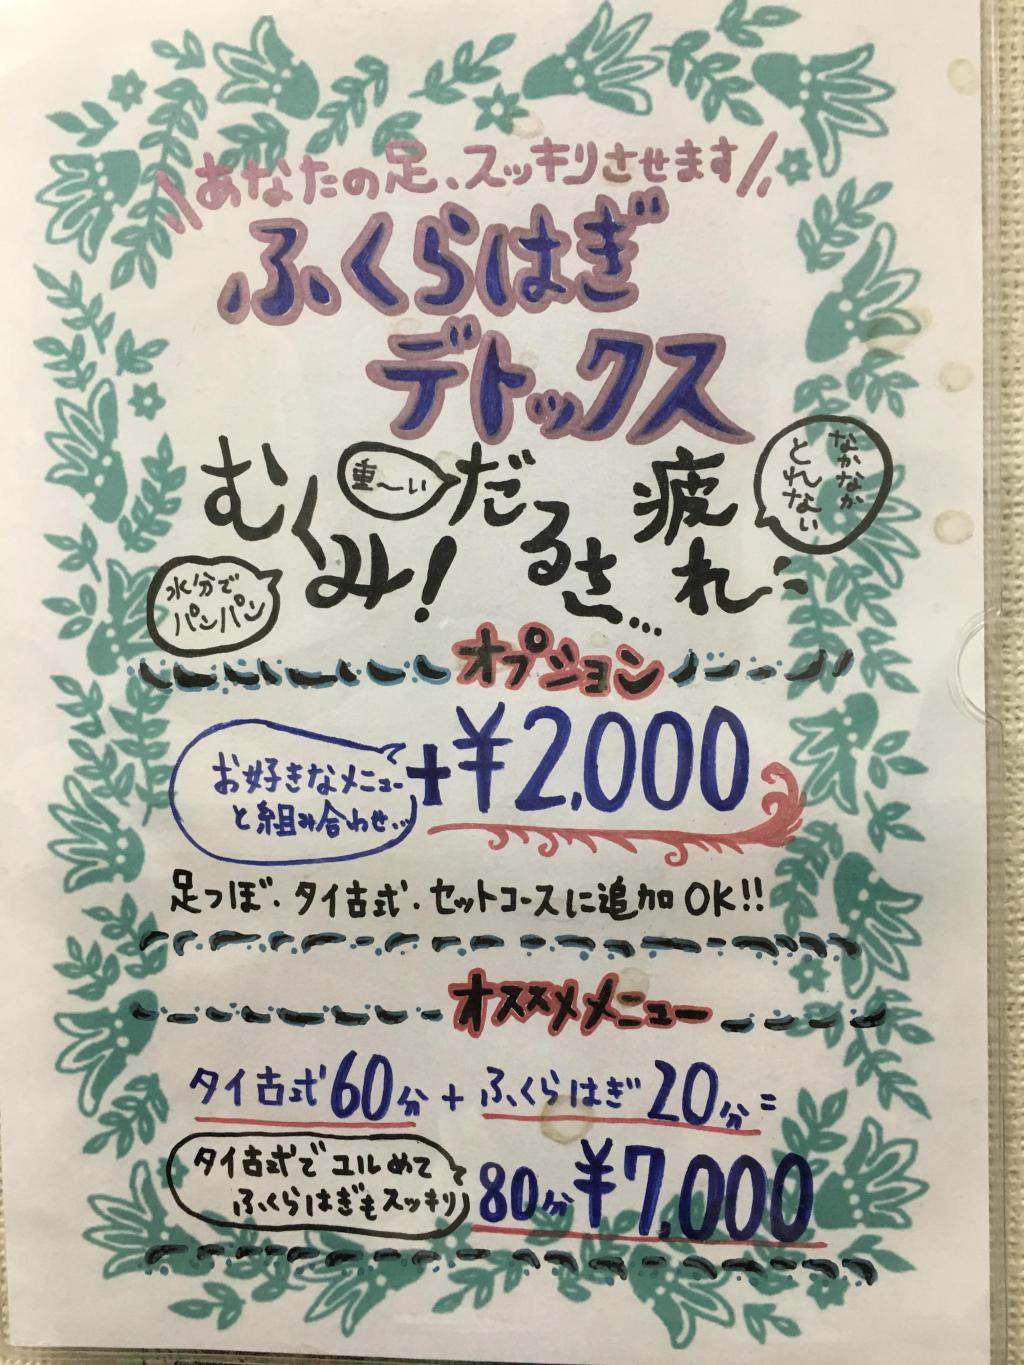 \\あなたの足、スッキリさせます//
ふくらはぎ
デトックス
むくみ!
水分で
パンパン
重〜い
だるさ…
疲れ…
なかなか
とれない
オプション
お好きなメニュー
と組み合わせ…
+¥2,000
足つぼ・タイ古式・セットコースに追加OK!!
オススメメニュー
タイ古式60分+ふくらはぎ20分=
タイ古式でユルめて
ふくらはぎもスッキリ
80分¥7,000